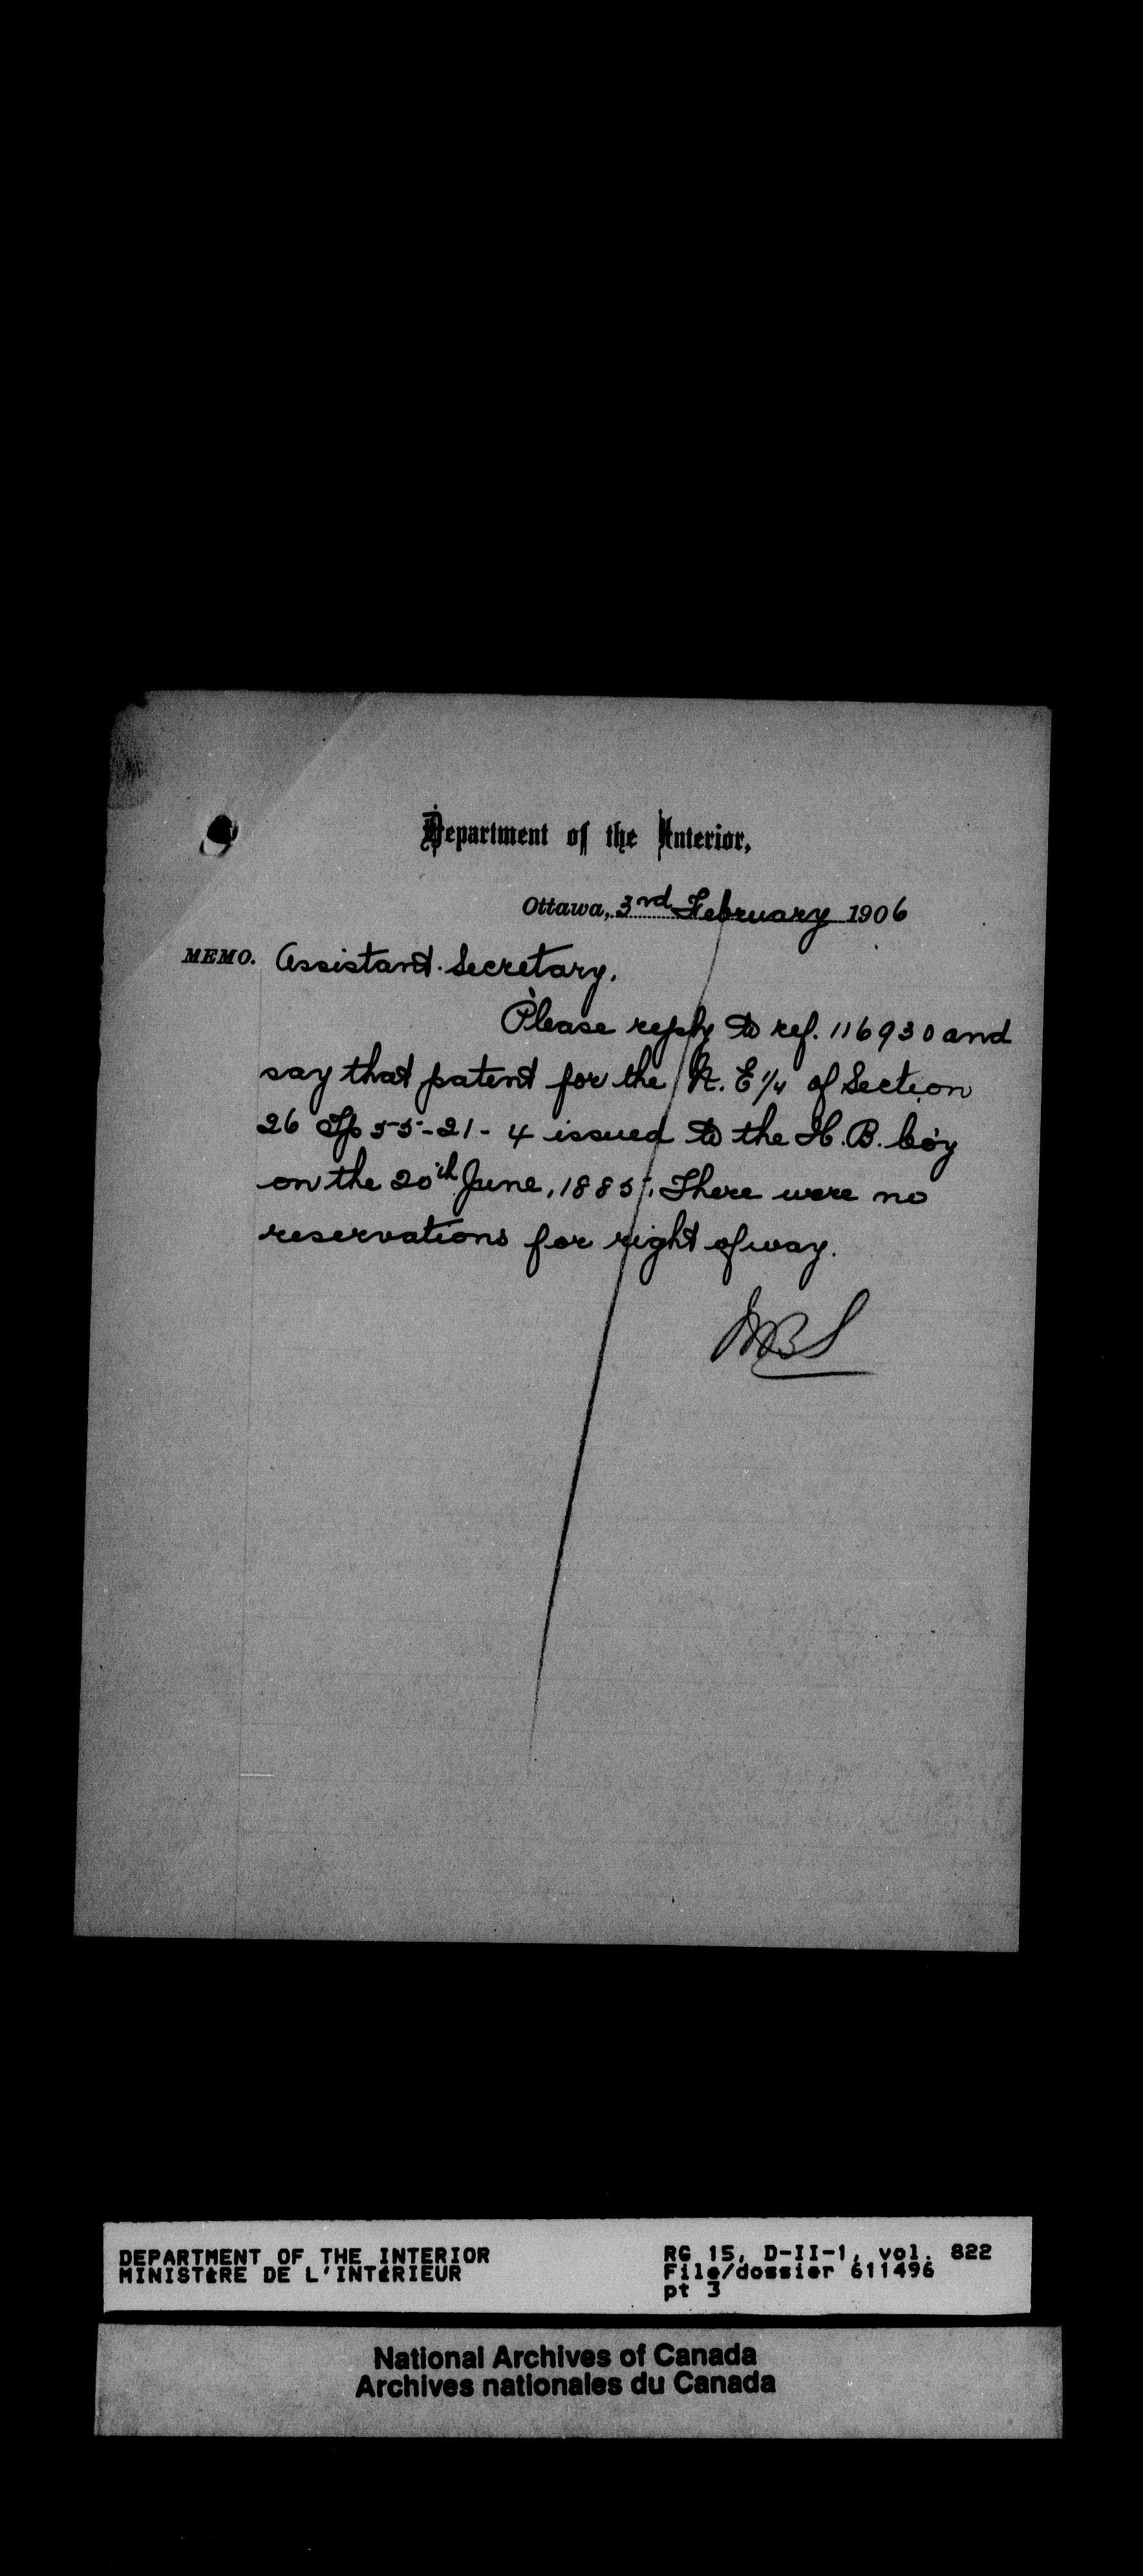 Department of the Interior,
Ottawa, 3rd February 1906
MEMO. Assistant Secretary.
Please reply to ref. 116930 and
say that patent for the N. E 1/4 of Section
26 Tp 55-21-4 issued to the H. B. Co'y
on the 20th June, 1885. There were no
reservations for right of way.
DEPARTMENT OF THE INTERIOR
MINISTÈRE DE L'INTÉRIEUR
RG 15, D-II-1, vol. 822
File/dossier 611496
pt 3
National Archives of Canada
Archives nationales du Canada